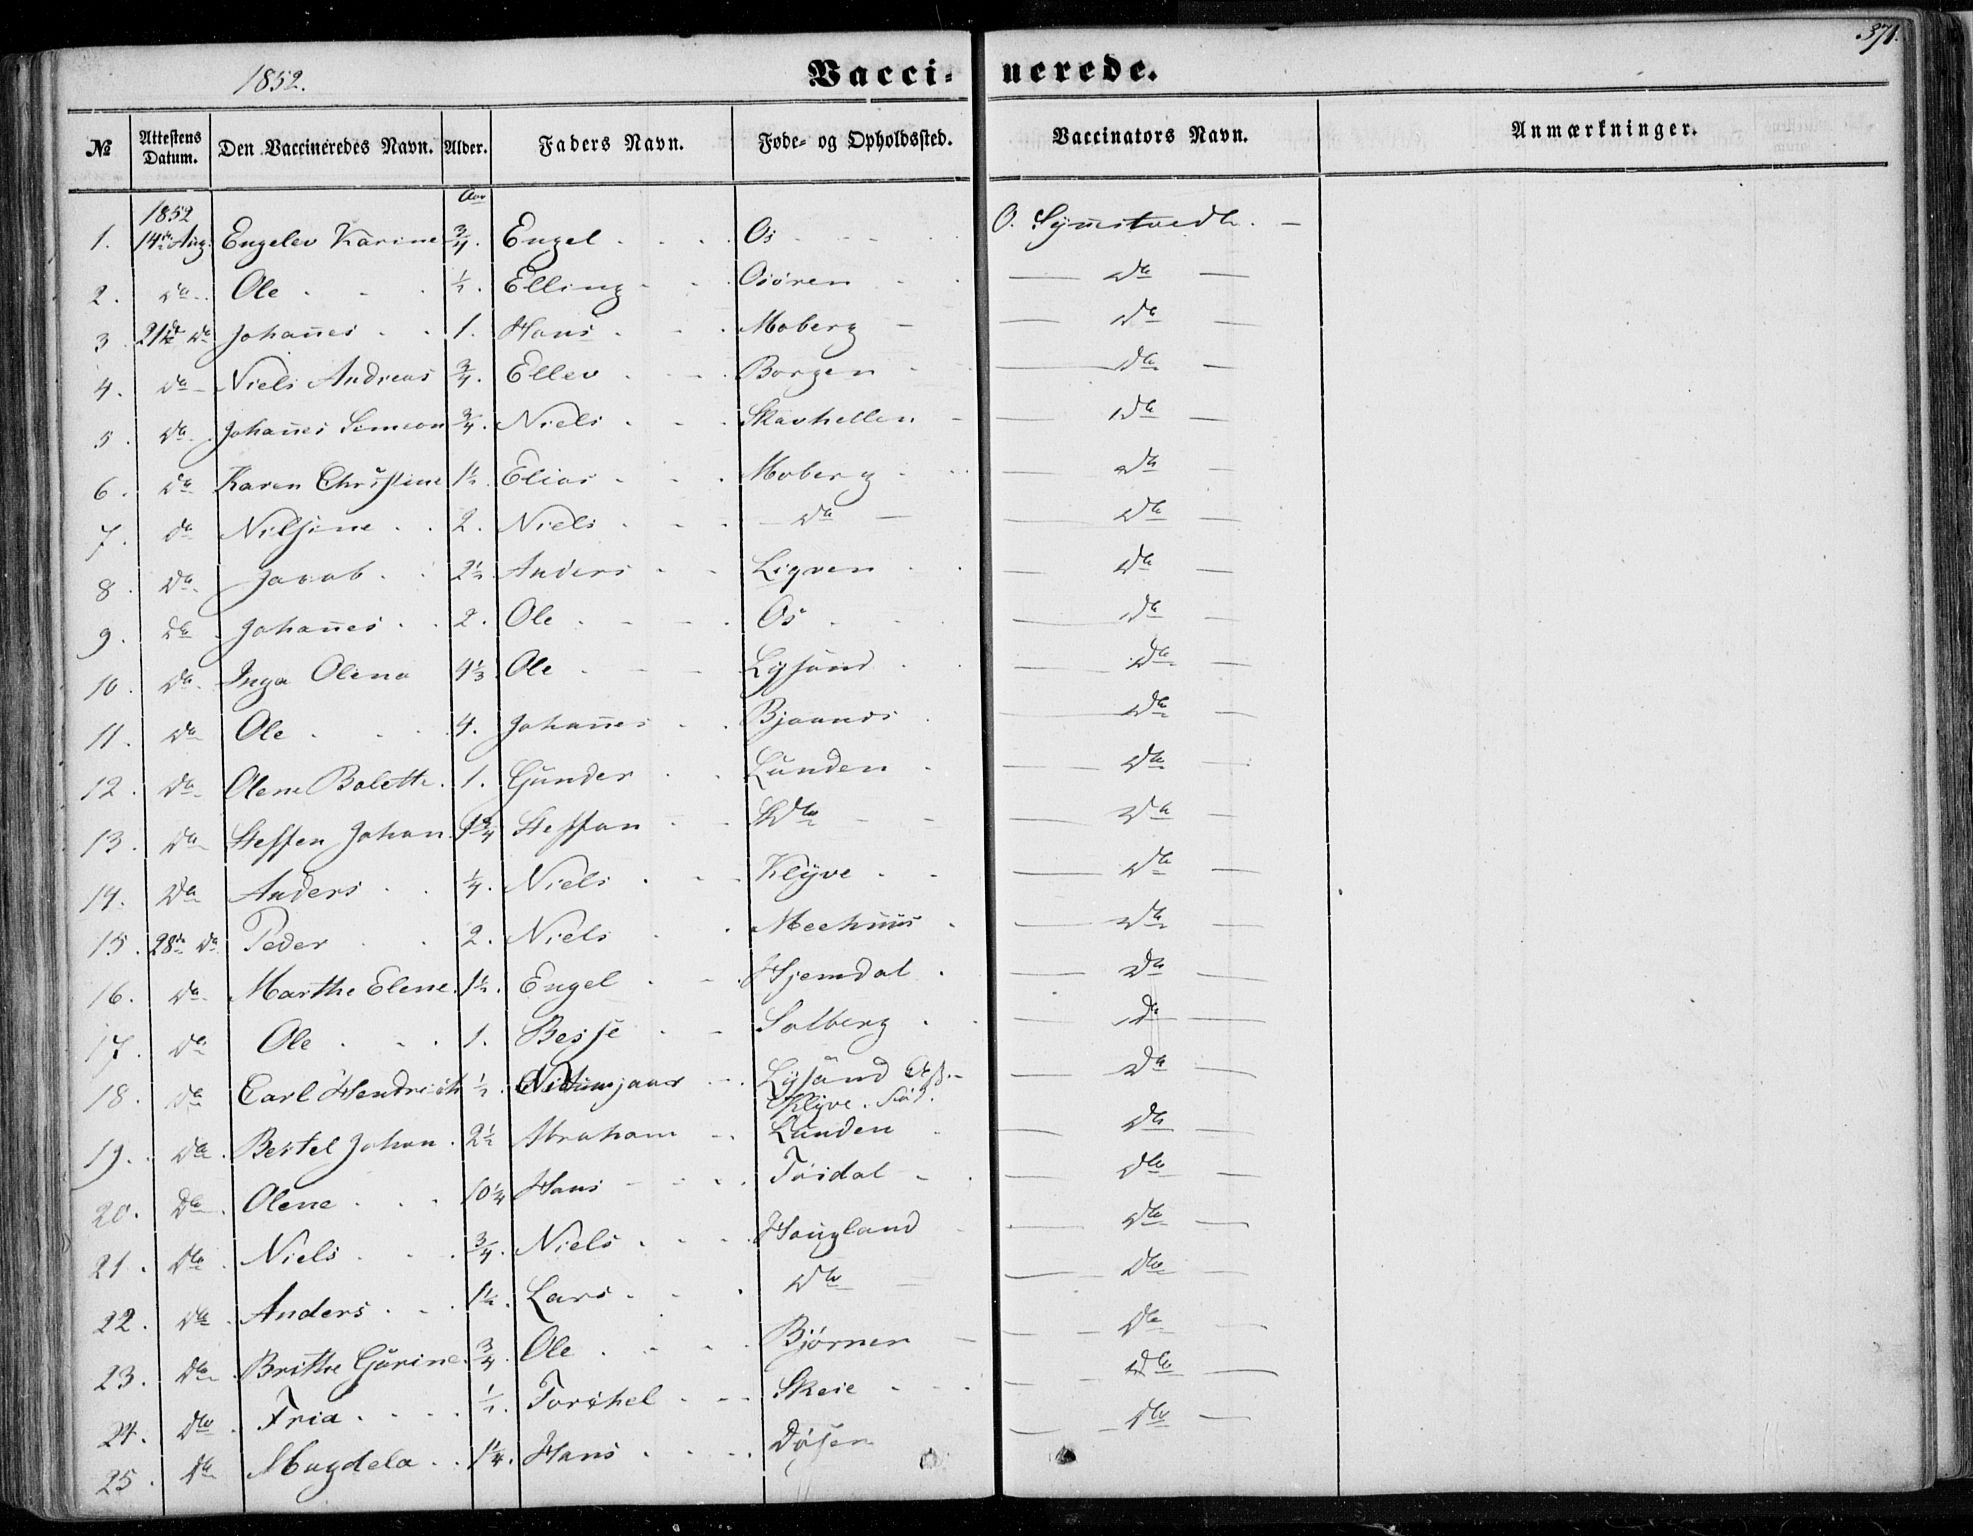 371.
1852. Vacci- nerede.
№ Attestens Datum. Den Vaccineredes Navn. Alder. Faders Navn. Føde- og Opholdssted. Vaccinators Navn. Anmærkninger.
1852 Aar
1. 14de Aug. Engelev Karine 3/4. Engel Os O.
2. Da Ole 1/2. Elling Osøren Da
3 21de Da Johan̄es 1. Hans Moberg Da
4. Da Niels Andreas 3/4. Ellev Borgen Da
5. Da Johan̄es Simeon 3/4. Niels Skavhellen Da
6. Da Karen Christine 1½ Elias Moberg Da
7. Da Nilsine 2. Niels Da Da
8. Da Jacob 2½ Anders Ligven Da
9. Da Johan̄es 2. Ole Os Da
10. Da Inga Olena 4⅓ Ole Lysand Da
11. Da Ole 4. Johan̄es Bjaanes Da
12. Da Olene Bolette 1. Gunder Lunden Da
13. Da Steffen Johan Steffan Da Da
14. Da Anders 1/4. Niels Klyve Da
15. 28de Da Peder 2. Niels Meehuus Da
16. Da Marthe Elene 1½. Engel Hjemdal Da
17. Da Ole 1. Besse Solberg Da
18. Da Carl Hendrich ½ Lysand Da
Klyve. Fød.
19. Da Bertel Johan 2½ Abraham Lunden Da
20. Da Olene 10¼ Hans Tøsdal Da
21. Da Niels 3/4. Niels Hougland Da
22. Da Anders 1½. Lars Da Da
23. Da Brithe Gurine 3/4. Ole Bjørnen Da
24. Da Fria ½. Torchel Skeie Da
25. Da Magdela 1¼. Hans Døsen Da